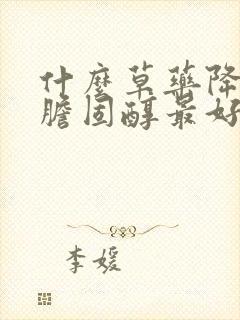 什麼草藥降
膽固醇最好
李媛